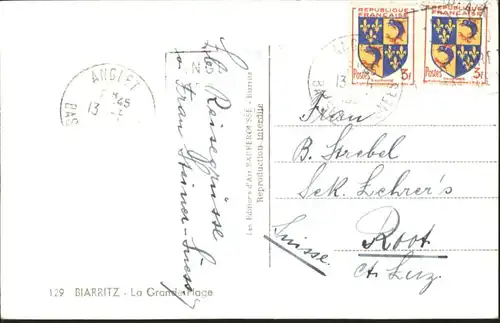 REPUBLIQUE FRANÇAISE
REPUBLIQUE FRANÇAISE
Postes 3F
Postes 3F
ANGLET
45
13
BAS
13
Lbe Reisegrüsse
v. Frau Steiner-Suess
Les Editions d'Art - Biarritz
Reproduction interdite
Frau
B. Strebel
Sek. Lehrer's
Root
Ct. Luz.
Suisse.
129 BIARRITZ - La Grande Plage